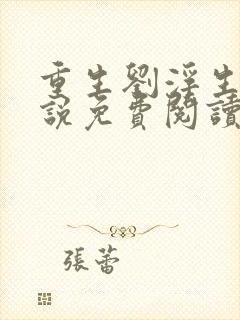 重生劉浮生
說免費閱讀
張蕾